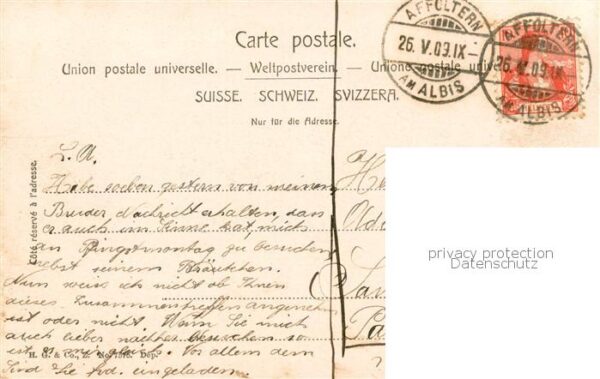 Carte postale.
Union postale universelle. — Weltpostverein. — Unione postale universale
SUISSE. SCHWEIZ. SVIZZERA.
Nur für die Adresse.
AFFOLTERN
26. V. 09. IX –
AM ALBIS
AFFOLTERN
26. V. 09. IX
AM ALBIS
Côté réservé à l'adresse.
L. A.
Habe soeben gestern von meinem
Bruder Nachricht erhalten, dass
er auch im Sinne hat, mich
am Pfingstmontag zu besuchen
nebst seinem Bräutchen.
Nun weiss ich nicht ob Ihnen
dieses Zusammentreffen angenehm
ist oder nicht. Wenn Sie mich
auch lieber nachher besuchen so
ist es mir gleich. Vor allem dem
sind Sie frd. eingeladen.
H. G. & Co., Z. No. Dep.
privacy protection
Datenschutz